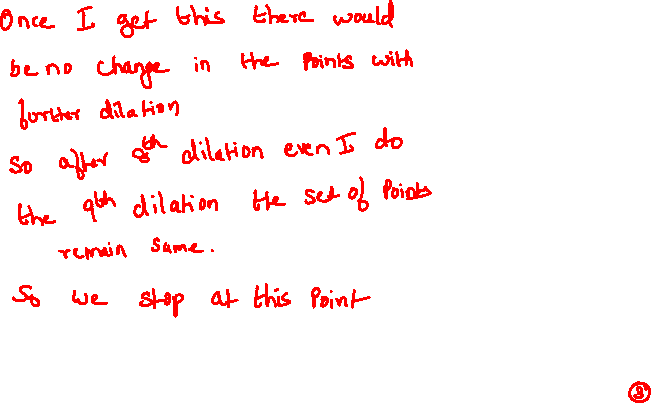 Once I get this there would
be no change in the points with
further dilation
So after 8th dilation even I do
the 9th dilation the set of points
remain same.
So we stop at this point
8